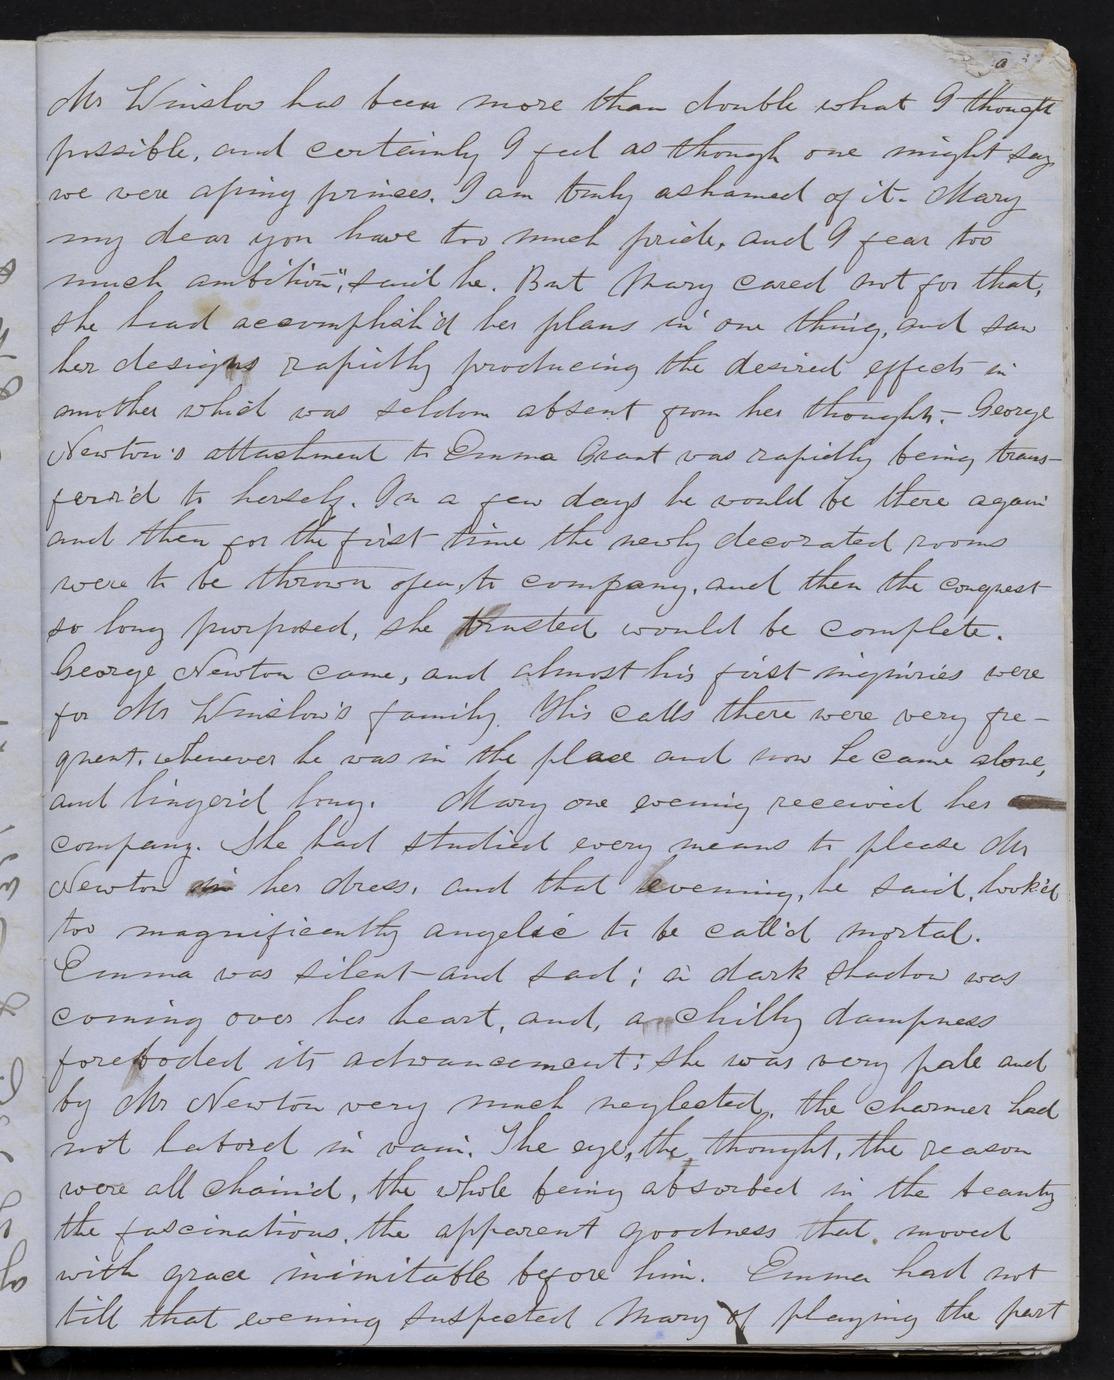 Mr Winslow has been more than double what I thought
possible, and certainly I feel as though one might say
we were aping princes. I am truly ashamed of it. Mary
my dear you have too much pride, and I fear too
much ambition", said he. But Mary cared not for that,
she had accomplish'd her plans in one thing, and saw
her designs rapidly producing the desired effects in
another which was seldom absent from her thoughts. George
Newton's attachment to Emma Grant was rapidly being trans-
ferr'd to herself. In a few days he would be there again
and then for the first time the newly decorated rooms
were to be thrown open, to company, and then the conquest
so long purposed, she trusted would be complete.
George Newton came, and almost his first inquiries were
for Mr Winslow's family. His calls there were very fre-
quent, whenever he was in the place and now he came alone,
and linger'd long. Mary one evening received her
company. She had studied every means to please Mr
Newton in her dress, and that evening, he said, look'd
too magnificently angelic to be call'd mortal.
Emma was silent and sad; a dark shadow was
coming over her heart, and, a chilly dampness
foreboded its advancement; she was very pale and
by Mr Newton very much neglected, the charmer had
not labord in vain. The eye, the thought, the reason
were all chain'd, the whole being absorbed in the beauty
the fascinations, the apparent goodness that moved
with grace inimitable before him. Emma had not
till that evening suspected Mary of playing the part